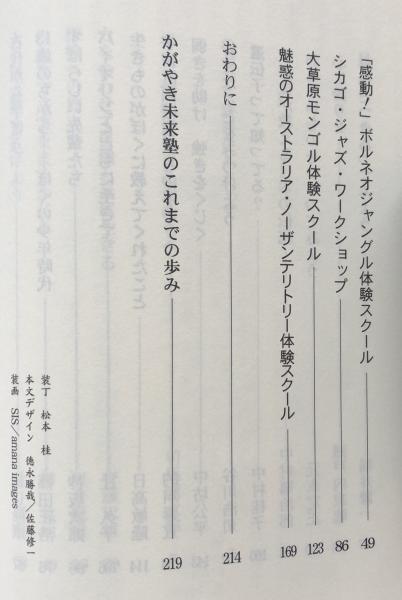 「感動！」ボルネオジャングル体験スクール 49
シカゴ・ジャズ・ワークショップ 86
大草原モンゴル体験スクール 123
魅惑のオーストラリア・ノーザンテリトリー体験スクール 169
おわりに 214
かがやき未来塾のこれまでの歩み 219
装丁 松本 桂
本文デザイン 徳永勝哉／佐藤修一
装画 SIS／amana images